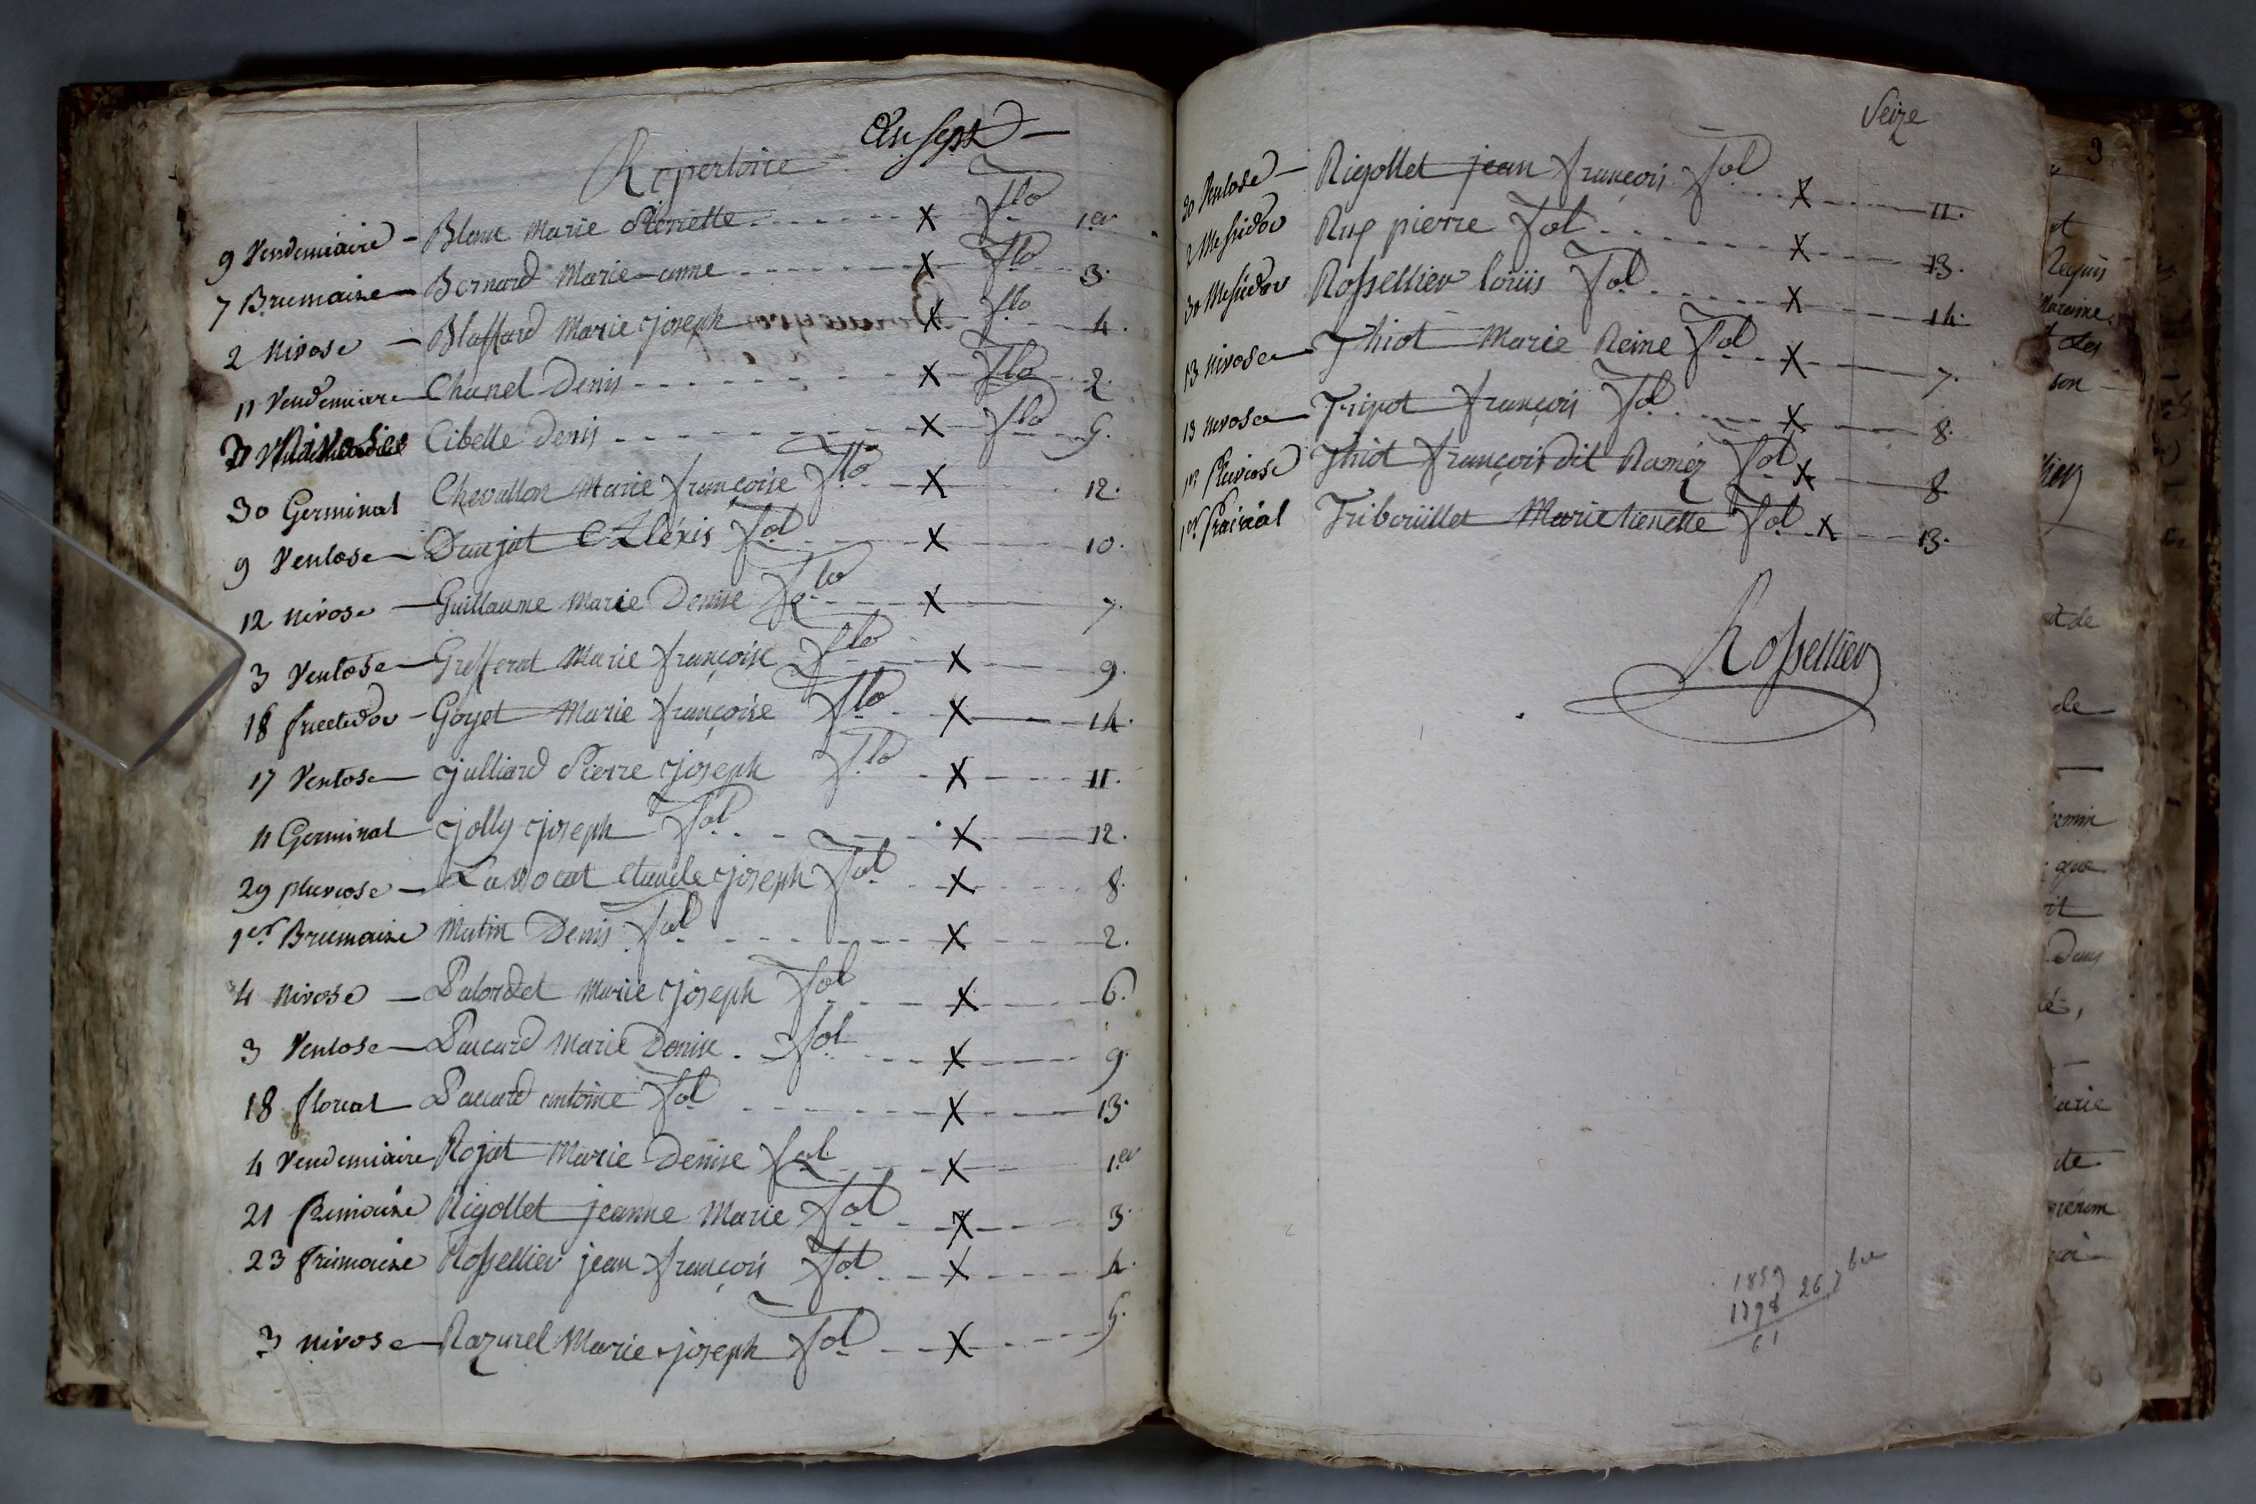 Repertoire an sept
9 Vendemiaire - Blanc Marie Pierrette X flo 1er
7 Brumaire - Bernard Marie-anne X flo 3.
2 Nivose - Blaffard Marie joseph X flo 4.
11 Vendemiaire - Chanel Denis X flo 2.
Cibelle Denis X flo 5.
30 Germinal Chevallon Marie françoise flo X 12.
9 Ventose - Daujat Alexis fol X 10.
12 nivose - Guillaume Marie Denise flo X 7.
3 Ventose - Grefferat Marie françoise flo X 9.
18 fructidor - Goyet Marie françoise flo X 14.
17 Ventose - julliard Pierre joseph flo X 11.
11 Germinal jolly joseph fol X 12.
29 pluviose - Lavocat claude joseph fol X 8.
1er Brumaire Mutin Denis fol X 2.
4 Nivose - Palordet Marie joseph fol X 6.
3 Ventose - Paccard Marie Denise fol X 9.
18 floreal Paccard antoine fol X 13.
4 Vendemiaire Rojat Marie Denise fol X 1er
21 frimaire Rigollet jeanne Marie fol X 3.
23 frimaire Rossellier jean françois fol X 4.
3 nivose - Razurel Marie joseph fol X 5.
Seize
20 Ventose - Rigollet jean françois fol X 11.
2 Messidor Rup pierre fol X 13.
30 Messidor Rossellier loüis fol X 14.
13 nivose - Thiot Marie Reine fol X 7.
13 nivose - Tripot françois fol X 8.
1er Pluviose Thiot françois dit Raméz fol X 8
1er Prairial Triboüillet Marie tienette fol X 13.
Rossellier
1859 26 7bre
1798
61